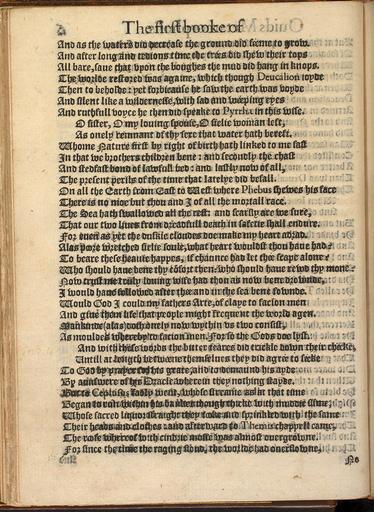 The first booke of
And as the waters did decrease the ground did seeme to grow.
And after long and tedious time the trees did shew their tops
All bare, saue that vpon the boughes the mud did hang in knops.
The worlde restored was againe, which though Deucalion ioyde
Then to beholde: yet forbicause he saw the earth was voyde
And silent like a wildernesse, with sad and weeping eyes
And ruthfull voyce he then did speake to Pyrrha in this wise.
O sister, O my louing spouse, O sielie woman left,
As onely remnant of thy sexe that water hath bereft.
Whome Nature first by right of birth hath linked to me fast
In that we brothers children bene: and secondly the chast
And stedfast bond of lawfull bed: and lastly now of all,
The present perils of the time that latelye did befall.
On all the Earth from East to West where Phebus shewes his face
There is no moe but thou and I of all the mortall race.
The Sea hath swallowed all the rest: and scarsly are we sure,
That our two liues from dreadfull death in safetie shall endure.
For euen as yet the duskie cloudes doe make my heart adrad.
Alas poore wretched sielie soule, what heart wouldst thou haue had
To beare these heauie happes, if chaunce had let me scape alone?
Who should haue bene thy cōsort then: who should haue rewd thy mone?
Now trust me truly louing wife had thou as now bene drownde,
I would haue followed after thee and in the sea bene fownde.
Would God I could my fathers Arte, of claye to facion men
And giue them life that people might frequent the world agen.
Mankinde (alas) doth onely now wythin vs two consist,
As mouldes whereby to facion men. For so the Gods doe lyst.
And with these words the bitter teares did trickle down their cheeke,
Untill at length betweene themselues they did agree to seeke
To God by prayer for his grace, and to demaund his ayde
By aunswere of his Oracle wherein they nothing stayde.
But to Cephisus sadly went, whose streame as at that time
Began to run within his bankes though thicke with muddie slime,
Whose sacred liquor straight they tooke and sprinkled with the same
Their heads and clothes: and afterward to Themis chappell came,
The roofe whereof with cindrie mosse was almost ouergrowne.
For since the time the raging floud, the worlde had ouerflowne,
No